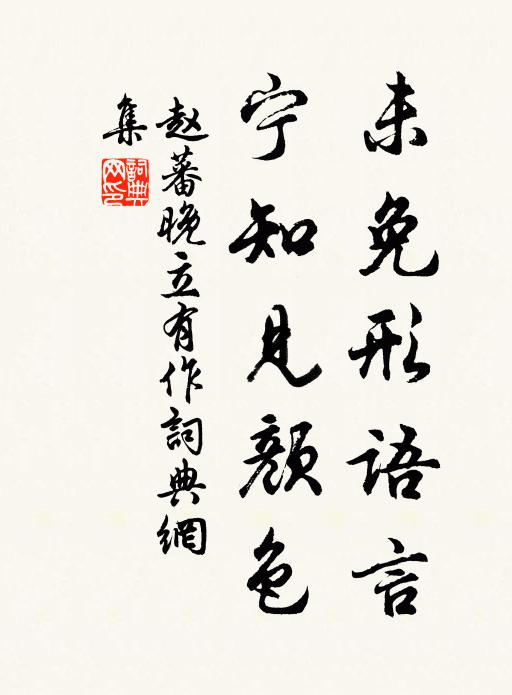 未免形语言
宁知见颜色
赵蕃晚立有作詞典網
集
詞典
网印